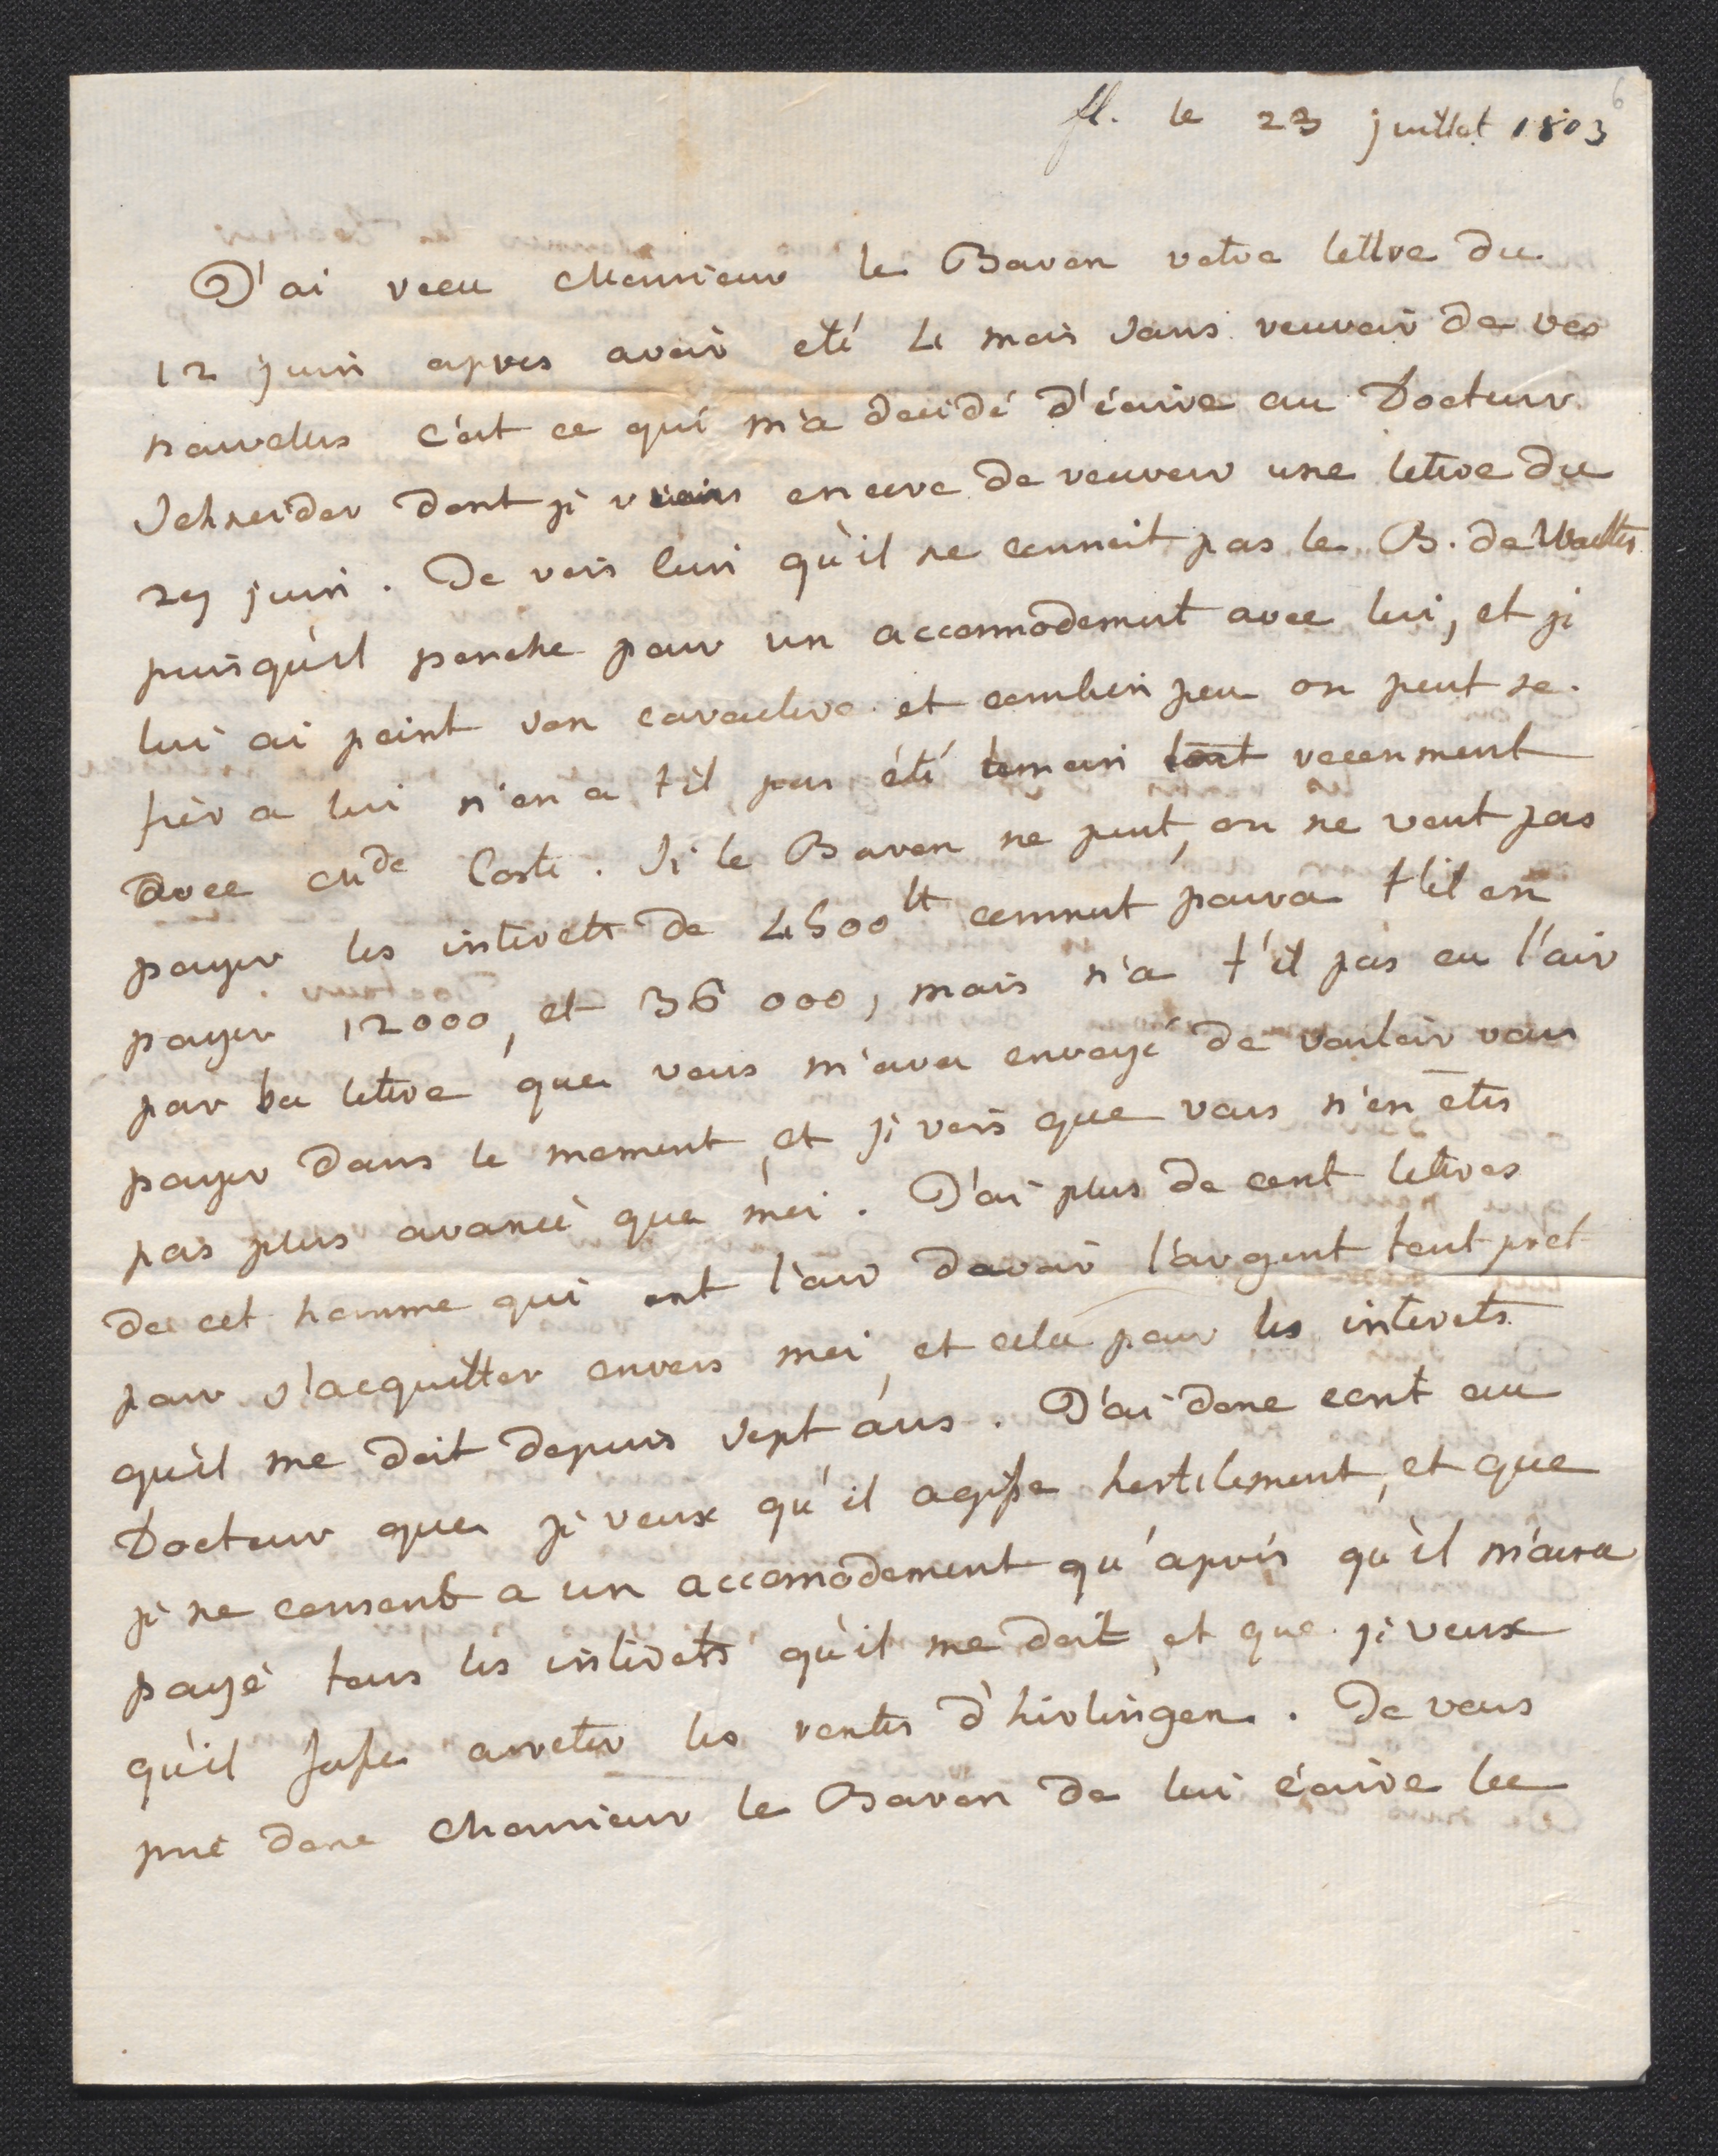 6
fl. le 23 juillet 1803
J'ai recu Monsieur le Baron votre lettre du
12 juin apres avoir eté 4 mois sans reuvoir de vos
nouvelles c'est ce qui m'a decidé d'écrire au Docteur
Schneider dont je viens encore de recevoir une lettre du
29 juin. Je vois bien qu'il ne connoit pas le B. de
puisqu'il penche pour un accommodement avec lui, et je
lui ai peint son caractere et combien peu on peut se
fier a lui n'en a t il pas été temoin tout recenment
avec Mde Coste. Si le Baron ne peut, ou ne veut pas
payer les interets de 4500lt comment poura t'il en
payer 12000, et 36 000, mais n'a t'il pas eu l'air
par sa lettre que vous m'avez envoyé de vouloir vous
payer dans le moment, et je vois que vous n'en étes
pas plus avancé que moi. J'ai plus de cent lettres
de cet homme qui ont l'air davoir l'argent tout pret
pour s'acquitter envers moi, et cela pour les interets
qu'il me doit depuis sept ans. J'ai donc ecrit au
Docteur que je veux qu'il agisse hostilement, et que
je ne consent a un accomodement qu'après qu'il m'aura
payé tous les interets qu'il me doit, et que je veux
qu'il fasse arreter les rentes d'hirlingen. Je vous
prie donc Monsieur le Baron de lui écrire le